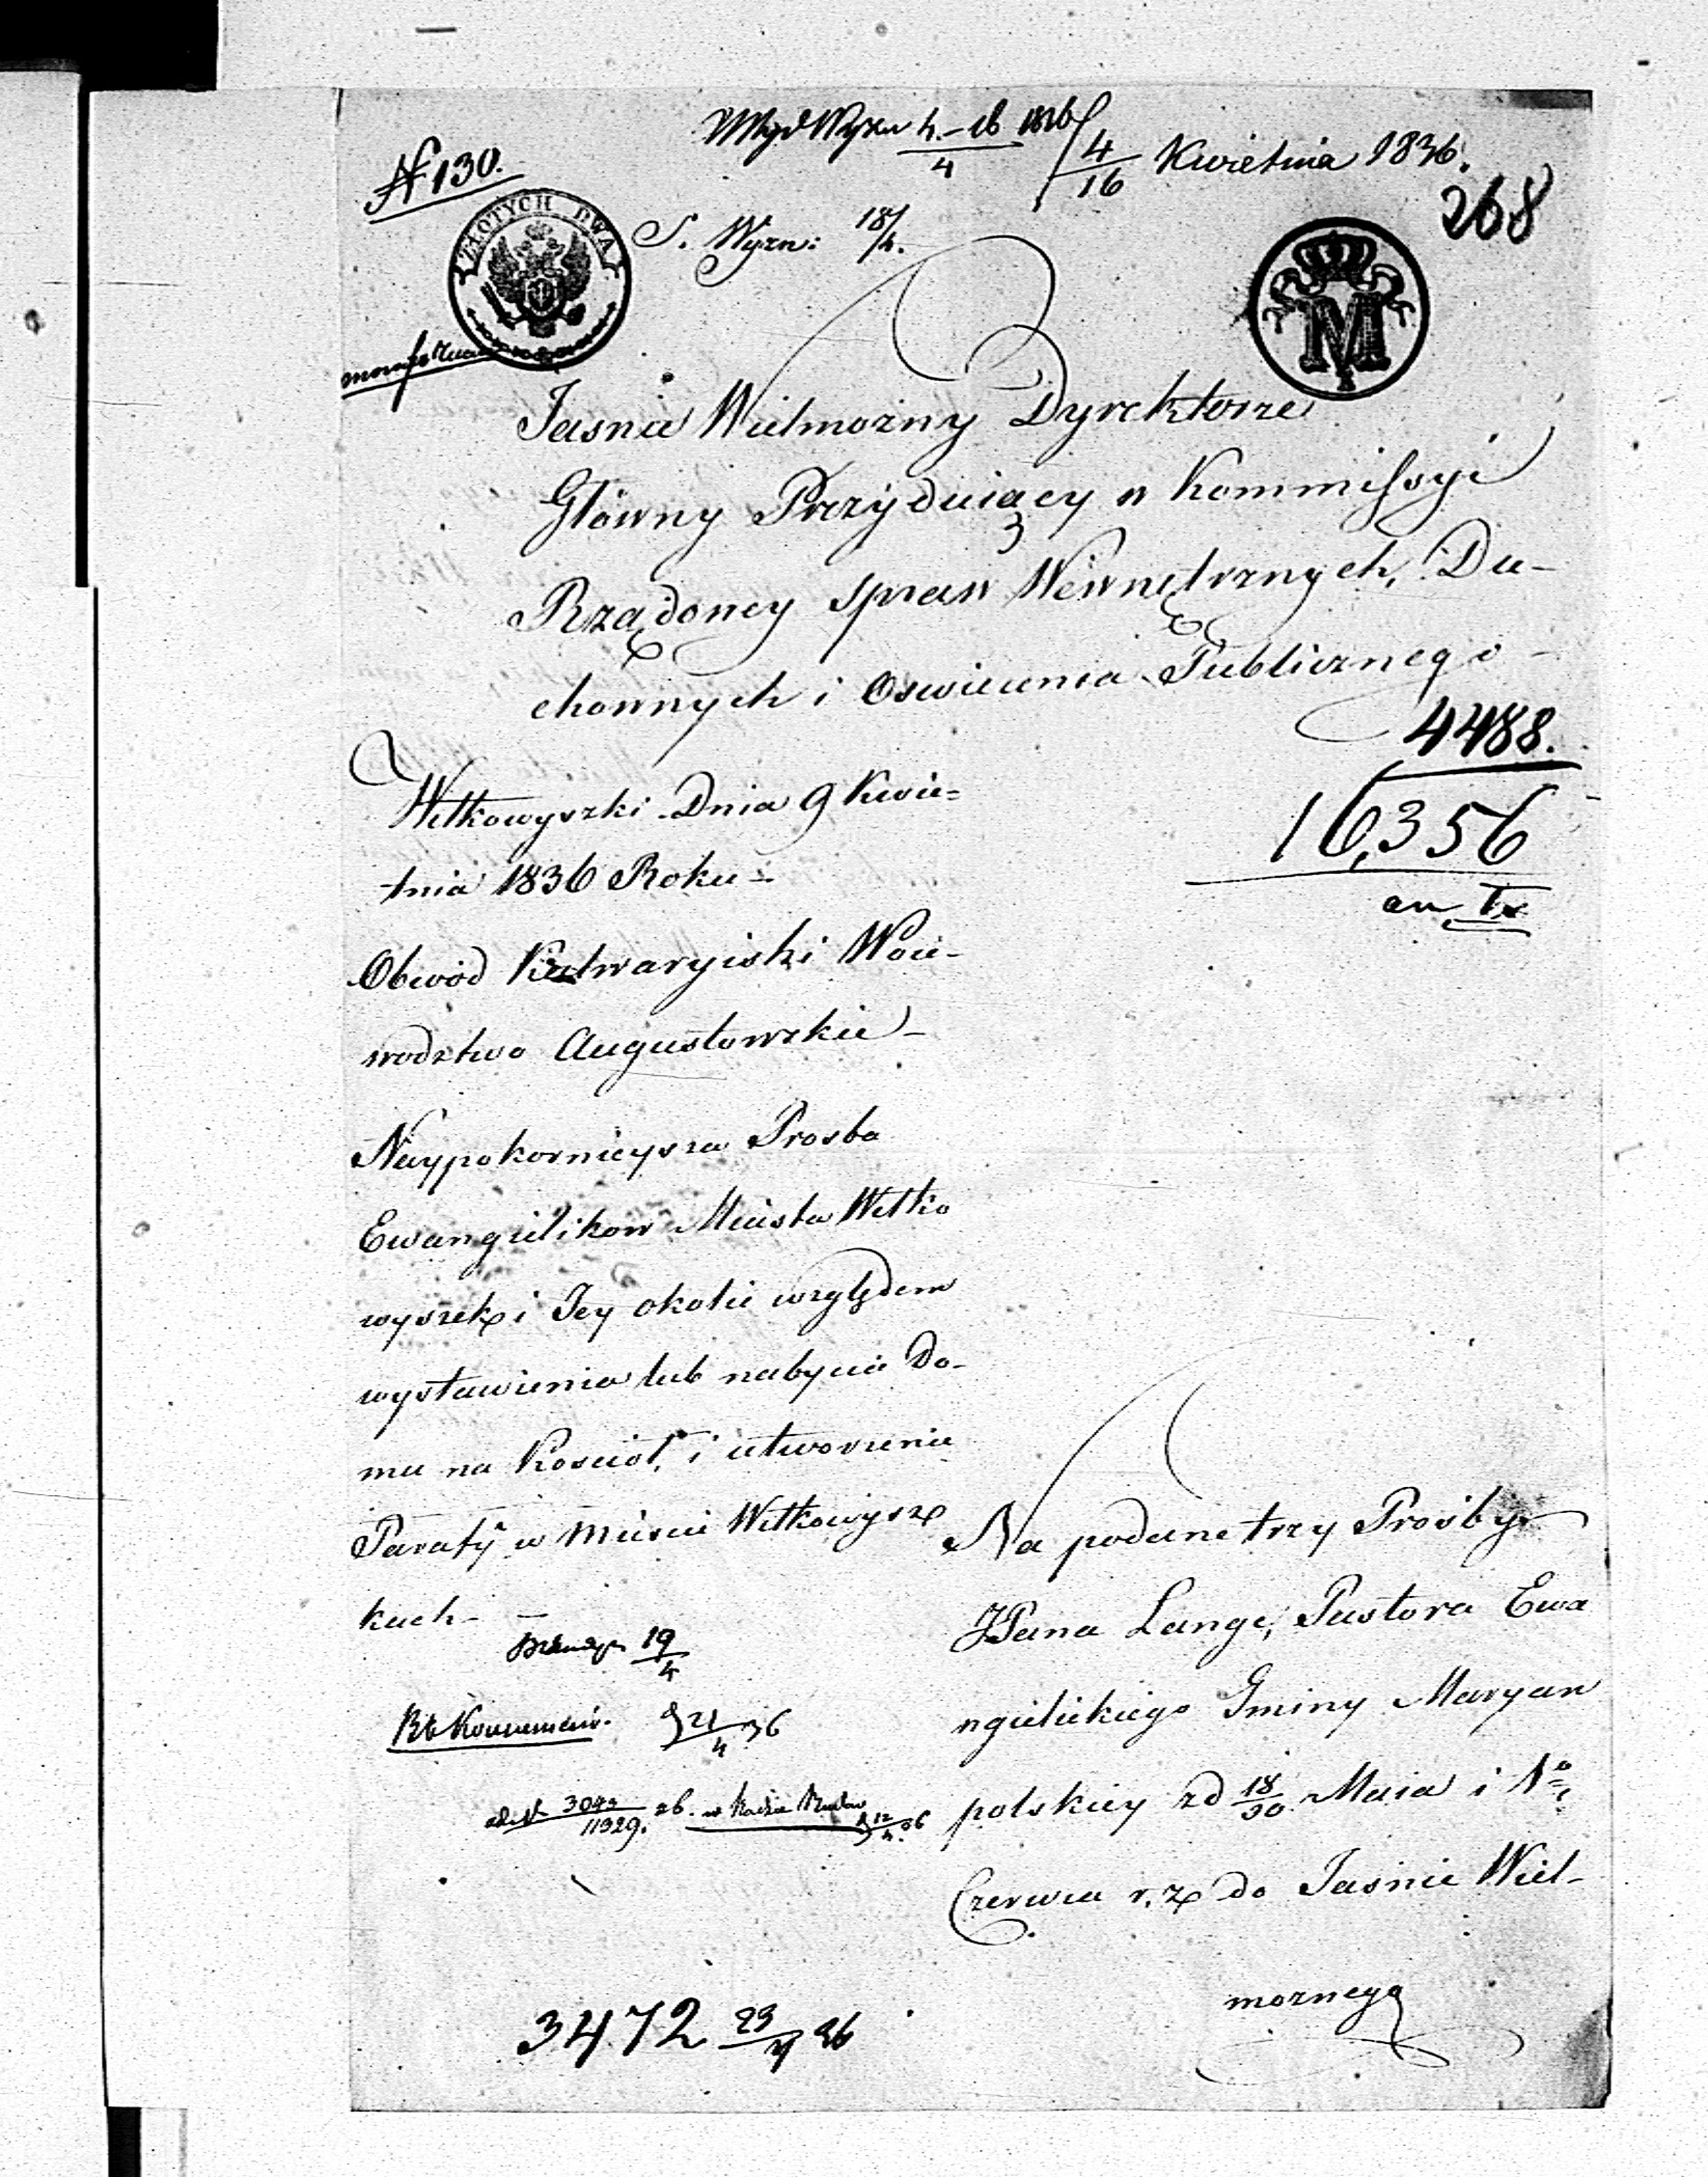 № 130.
4/16 Kwietnia 1836.
268
S. Wyzn: 18/4.
ZŁOTYCH DWA
M
Jasnie Wielmożny Dyrektorze
Główny Prezyduiący w Kommissyi
Rządowey spraw Wewnętrznych, Du-
chownych i Oswiecenia Publicznego
4488.
16,356
Wiłkowyszki Dnia 9 Kwie=
tnia 1836 Roku
Obwód Kalwaryiski Woie-
wodztwo Augustowskie
Naypokornieysza Prosba
Ewangielikow Miasta Wiłko
wyszek i Jey okolic względem
wystawienia lub nabycia Do-
mu na Kosciół, i utworzenie
Parafij w Miescie Wiłkowysz
kach-
19/4
21/4 36
3043/11329. 36. w
3472 23/4 36
Na podane trzy Prosby
JPana Lange, Pastora Ewa
ngielickiego Gminy Maryam
polskiey zd 18/30 Maia i 1º
Czerwca r. z do Jasnie Wiel-
możnego